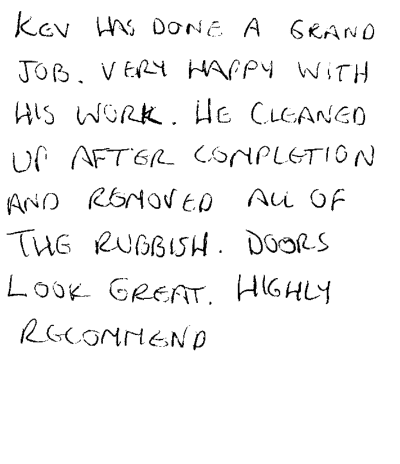 KEV HAS DONE A GRAND
JOB. VERY HAPPY WITH
HIS WORK. HE CLEANED
UP AFTER COMPLETION
AND REMOVED ALL OF
THE RUBBISH. DOORS
LOOK GREAT. HIGHLY
RECOMMEND